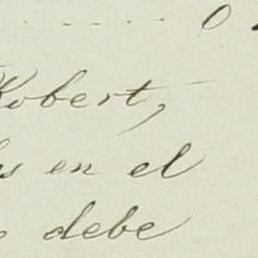 Robert,
en el
debe